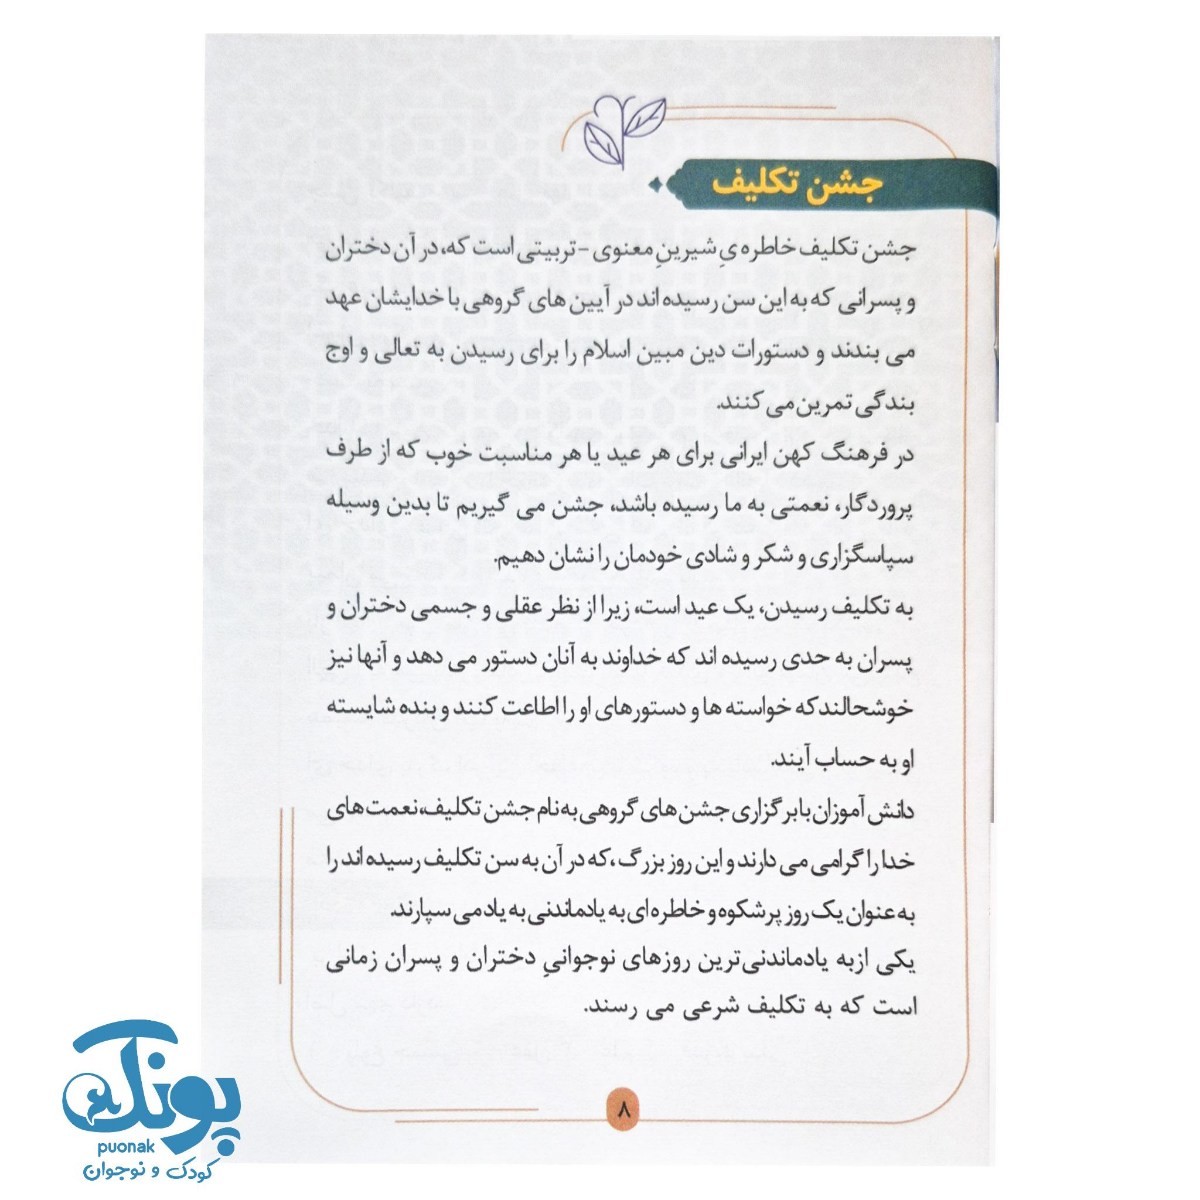 جشن تکلیف
جشن تکلیف خاطره یِ شیرینِ معنوی - تربیتی است که، در آن دختران
و پسرانی که به این سن رسیده اند در آیین های گروهی با خدایشان عهد
می بندند و دستورات دین مبین اسلام را برای رسیدن به تعالی و اوج
بندگی تمرین می کنند.
در فرهنگ کهن ایرانی برای هر عید یا هر مناسبت خوب که از طرف
پروردگار، نعمتی به ما رسیده باشد، جشن می گیریم تا بدین وسیله
سپاسگزاری و شکر و شادی خودمان را نشان دهیم.
به تکلیف رسیدن، یک عید است، زیرا از نظر عقلی و جسمی دختران و
پسران به حدی رسیده اند که خداوند به آنان دستور می دهد و آنها نیز
خوشحالندکه خواسته ها و دستورهای او را اطاعت کنند و بنده شایسته
او به حساب آیند.
دانش آموزان با برگزاری جشن های گروهی به نام جشن تکلیف، نعمت های
خدا را گرامی می دارند و این روز بزرگ ،که در آن به سن تکلیف رسیده اند را
به عنوان یک روز پرشکوه و خاطره ای به یادماندنی به یاد می سپارند.
یکی ازبه یادماندنی‌ترین روزهای نوجوانیِ دختران و پسران زمانی
است که به تکلیف شرعی می رسند.
۸
پونک
puonak
کودک و نوجوان